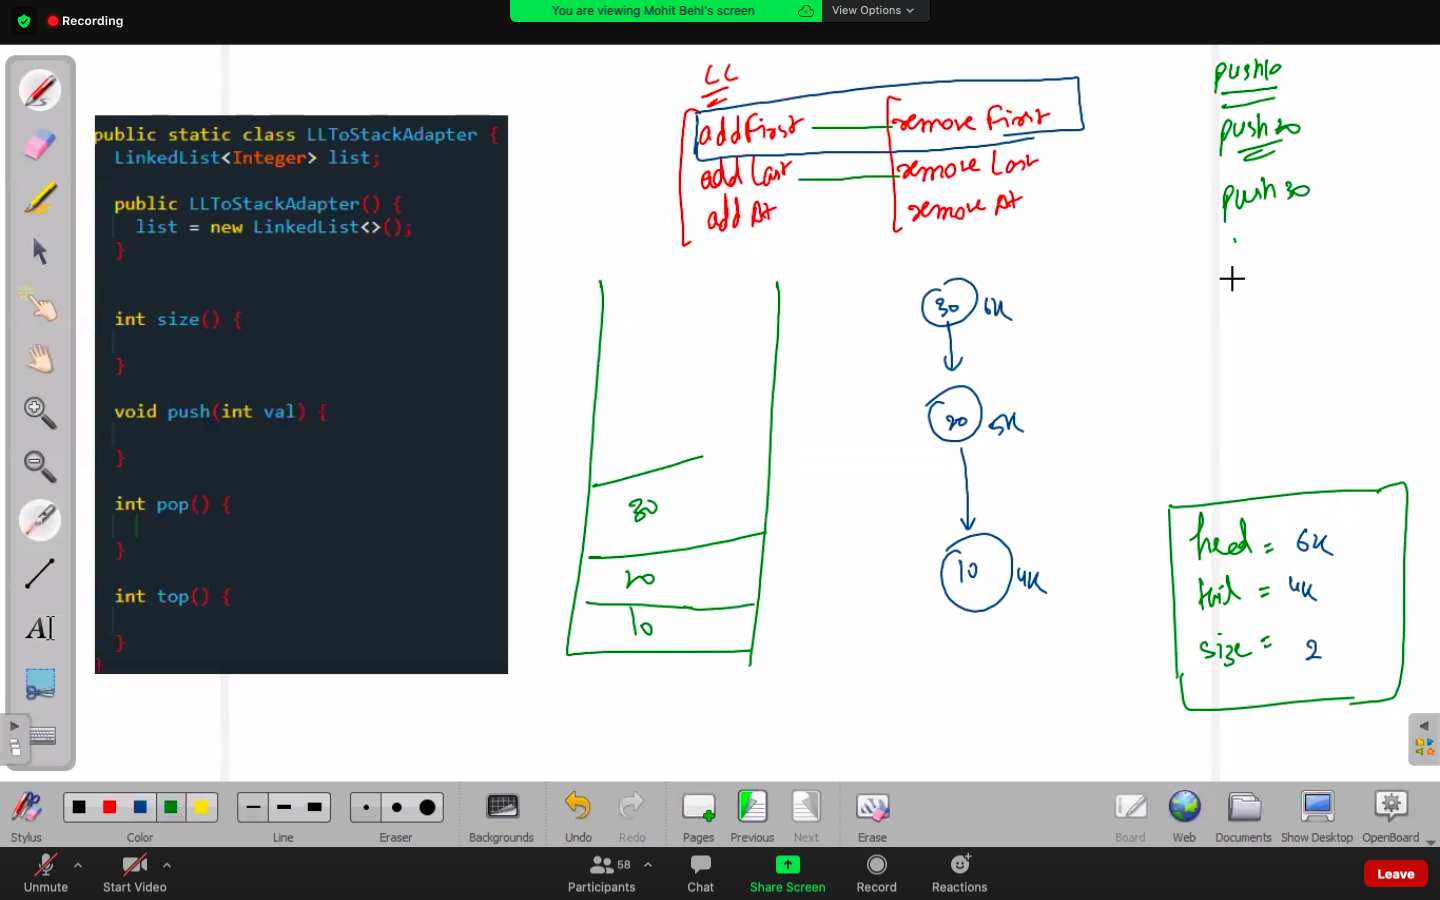 You are viewing Mohit Behl's screen
View Options
Recording
public static class LLToStackAdapter {
LinkedList<Integer> list;
public LLToStackAdapter() {
list = new LinkedList<>();
}
int size() {
}
void push(int val) {
}
int pop() {
}
int top() {
}
}
LL
addFirst
remove First
add Last
remove Last
add At
remove At
push10
push 20
push 30
30 6K
20 5K
10 4K
30
20
10
head = 6K
tail = 4K
size = 2
Stylus
Color
Line
Eraser
Backgrounds
Undo
Redo
Pages
Previous
Next
Erase
Board
Web
Documents
Show Desktop
OpenBoard
Unmute
Start Video
Participants
58
Chat
Share Screen
Record
Reactions
Leave